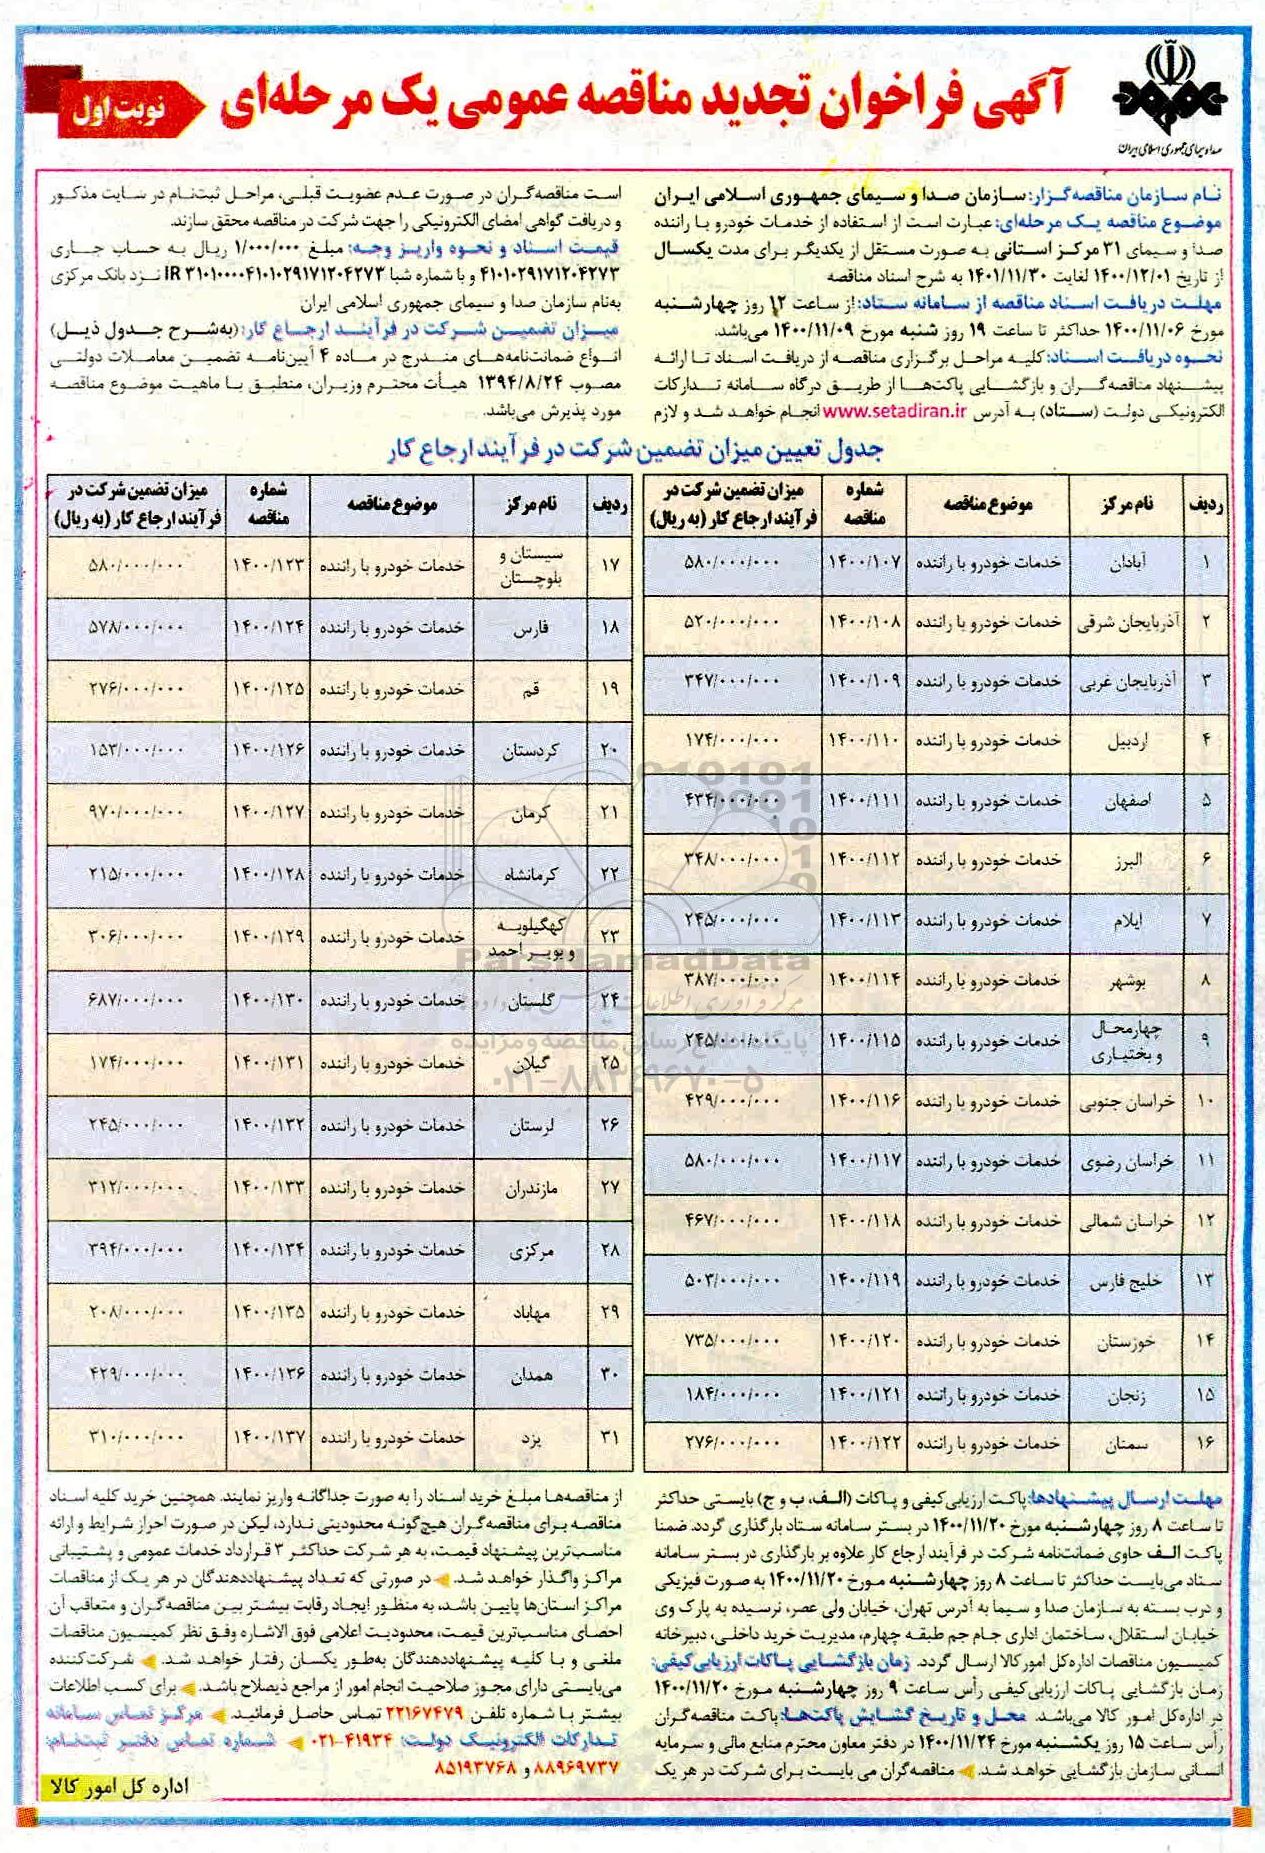 آگهی فراخوان تجدید مناقصه عمومی یک مرحله‌ای
نوبت اول
صدا و سیمای جمهوری اسلامی ایران
نام سازمان مناقصه‌گزار: سازمان صدا و سیمای جمهوری اسلامی ایران
موضوع مناقصه یک مرحله‌ای: عبارت است از استفاده از خدمات خودرو با راننده
صدا و سیمای ۳۱ مرکز استانی به صورت مستقل از یکدیگر برای مدت یکسال
از تاریخ ۱۴۰۰/۱۲/۰۱ لغایت ۱۴۰۱/۱۱/۳۰ به شرح اسناد مناقصه
مهلت دریافت اسناد مناقصه از سامانه ستاد: از ساعت ۱۲ روز چهارشنبه
مورخ ۱۴۰۰/۱۱/۰۶ حداکثر تا ساعت ۱۹ روز شنبه مورخ ۱۴۰۰/۱۱/۰۹ می‌باشد.
نحوه دریافت اسناد: کلیه مراحل برگزاری مناقصه از دریافت اسناد تا ارائه
پیشنهاد مناقصه‌گران و بازگشایی پاکت‌ها از طریق درگاه سامانه تدارکات
الکترونیکی دولت (ستاد) به آدرس www.setadiran.ir انجام خواهد شد و لازم
است مناقصه‌گران در صورت عدم عضویت قبلی، مراحل ثبت‌نام در سایت مذکور
و دریافت گواهی امضای الکترونیکی را جهت شرکت در مناقصه محقق سازند.
قیمت اسناد و نحوه واریز وجه: مبلغ ۱/۰۰۰/۰۰۰ ریال به حساب جاری
۴۱۰۱۰۲۹۱۷۱۲۰۴۲۷۳ و با شماره شبا IR ۳۱۰۱۰۰۰۰۴۱۰۱۰۲۹۱۷۱۲۰۴۲۷۳ نزد بانک مرکزی
به‌نام سازمان صدا و سیمای جمهوری اسلامی ایران
میزان تضمین شرکت در فرآیند ارجاع کار: (به‌شرح جدول ذیل)
انواع ضمانت‌نامه‌های مندرج در ماده ۴ آیین‌نامه تضمین معاملات دولتی
مصوب ۱۳۹۴/۸/۲۴ هیأت محترم وزیران، منطبق با ماهیت موضوع مناقصه
مورد پذیرش می‌باشد.
جدول تعیین میزان تضمین شرکت در فرآیند ارجاع کار
ردیف نام مرکز موضوع مناقصه شماره مناقصه میزان تضمین شرکت در فرآیند ارجاع کار (به ریال)
۱ آبادان خدمات خودرو با راننده ۱۴۰۰/۱۰۷ ۵۸۰/۰۰۰/۰۰۰
۲ آذربایجان شرقی خدمات خودرو با راننده ۱۴۰۰/۱۰۸ ۵۲۰/۰۰۰/۰۰۰
۳ آذربایجان غربی خدمات خودرو با راننده ۱۴۰۰/۱۰۹ ۳۴۷/۰۰۰/۰۰۰
۴ اردبیل خدمات خودرو با راننده ۱۴۰۰/۱۱۰ ۱۷۴/۰۰۰/۰۰۰
۵ اصفهان خدمات خودرو با راننده ۱۴۰۰/۱۱۱ ۴۳۴/۰۰۰/۰۰۰
۶ البرز خدمات خودرو با راننده ۱۴۰۰/۱۱۲ ۳۴۸/۰۰۰/۰۰۰
۷ ایلام خدمات خودرو با راننده ۱۴۰۰/۱۱۳ ۲۴۵/۰۰۰/۰۰۰
۸ بوشهر خدمات خودرو با راننده ۱۴۰۰/۱۱۴ ۳۸۷/۰۰۰/۰۰۰
۹ چهارمحال و بختیاری خدمات خودرو با راننده ۱۴۰۰/۱۱۵ ۲۴۵/۰۰۰/۰۰۰
۱۰ خراسان جنوبی خدمات خودرو با راننده ۱۴۰۰/۱۱۶ ۴۲۹/۰۰۰/۰۰۰
۱۱ خراسان رضوی خدمات خودرو با راننده ۱۴۰۰/۱۱۷ ۵۸۰/۰۰۰/۰۰۰
۱۲ خراسان شمالی خدمات خودرو با راننده ۱۴۰۰/۱۱۸ ۴۶۷/۰۰۰/۰۰۰
۱۳ خلیج فارس خدمات خودرو با راننده ۱۴۰۰/۱۱۹ ۵۰۳/۰۰۰/۰۰۰
۱۴ خوزستان خدمات خودرو با راننده ۱۴۰۰/۱۲۰ ۷۳۵/۰۰۰/۰۰۰
۱۵ زنجان خدمات خودرو با راننده ۱۴۰۰/۱۲۱ ۱۸۴/۰۰۰/۰۰۰
۱۶ سمنان خدمات خودرو با راننده ۱۴۰۰/۱۲۲ ۲۷۶/۰۰۰/۰۰۰
ردیف نام مرکز موضوع مناقصه شماره مناقصه میزان تضمین شرکت در فرآیند ارجاع کار (به ریال)
۱۷ سیستان و بلوچستان خدمات خودرو با راننده ۱۴۰۰/۱۲۳ ۵۸۰/۰۰۰/۰۰۰
۱۸ فارس خدمات خودرو با راننده ۱۴۰۰/۱۲۴ ۵۷۸/۰۰۰/۰۰۰
۱۹ قم خدمات خودرو با راننده ۱۴۰۰/۱۲۵ ۲۷۶/۰۰۰/۰۰۰
۲۰ کردستان خدمات خودرو با راننده ۱۴۰۰/۱۲۶ ۱۵۳/۰۰۰/۰۰۰
۲۱ کرمان خدمات خودرو با راننده ۱۴۰۰/۱۲۷ ۹۷۰/۰۰۰/۰۰۰
۲۲ کرمانشاه خدمات خودرو با راننده ۱۴۰۰/۱۲۸ ۲۱۵/۰۰۰/۰۰۰
۲۳ کهگیلویه و بویر احمد خدمات خودرو با راننده ۱۴۰۰/۱۲۹ ۳۰۶/۰۰۰/۰۰۰
۲۴ گلستان خدمات خودرو با راننده ۱۴۰۰/۱۳۰ ۶۸۷/۰۰۰/۰۰۰
۲۵ گیلان خدمات خودرو با راننده ۱۴۰۰/۱۳۱ ۱۷۴/۰۰۰/۰۰۰
۲۶ لرستان خدمات خودرو با راننده ۱۴۰۰/۱۳۲ ۲۴۵/۰۰۰/۰۰۰
۲۷ مازندران خدمات خودرو با راننده ۱۴۰۰/۱۳۳ ۳۱۲/۰۰۰/۰۰۰
۲۸ مرکزی خدمات خودرو با راننده ۱۴۰۰/۱۳۴ ۳۹۴/۰۰۰/۰۰۰
۲۹ مهاباد خدمات خودرو با راننده ۱۴۰۰/۱۳۵ ۲۰۸/۰۰۰/۰۰۰
۳۰ همدان خدمات خودرو با راننده ۱۴۰۰/۱۳۶ ۴۲۹/۰۰۰/۰۰۰
۳۱ یزد خدمات خودرو با راننده ۱۴۰۰/۱۳۷ ۳۱۰/۰۰۰/۰۰۰
ParsNamadData
پایگاه اطلاع رسانی مناقصه و مزایده
۰۲۱-۸۸۳۴۹۶۷۰-۵
مهلت ارسال پیشنهادها: پاکت ارزیابی کیفی و پاکات (الف، ب و ج) بایستی حداکثر
تا ساعت ۸ روز چهارشنبه مورخ ۱۴۰۰/۱۱/۲۰ در بستر سامانه ستاد بارگذاری گردد. ضمنا
پاکت الف حاوی ضمانت‌نامه شرکت در فرآیند ارجاع کار علاوه بر بارگذاری در بستر سامانه
ستاد می‌بایست حداکثر تا ساعت ۸ روز چهارشنبه مورخ ۱۴۰۰/۱۱/۲۰ به صورت فیزیکی
و درب بسته به سازمان صدا و سیما به آدرس تهران، خیابان ولی عصر، نرسیده به پارک وی
خیابان استقلال، ساختمان اداری جام جم طبقه چهارم، مدیریت خرید داخلی، دبیرخانه
کمیسیون مناقصات اداره‌کل امور کالا ارسال گردد. زمان بازگشایی پاکات ارزیابی کیفی:
زمان بازگشایی پاکات ارزیابی کیفی رأس ساعت ۹ روز چهارشنبه مورخ ۱۴۰۰/۱۱/۲۰
در اداره‌کل امور کالا می‌باشد. محل و تاریخ گشایش پاکت‌ها: پاکت مناقصه‌گران
رأس ساعت ۱۵ روز یکشنبه مورخ ۱۴۰۰/۱۱/۲۴ در دفتر معاون محترم منابع مالی و سرمایه
انسانی سازمان بازگشایی خواهد شد. مناقصه‌گران می بایست برای شرکت در هر یک
از مناقصه‌ها مبلغ خرید اسناد را به صورت جداگانه واریز نمایند. همچنین خرید کلیه اسناد
مناقصه برای مناقصه‌گران هیچ‌گونه محدودیتی ندارد، لیکن در صورت احراز شرایط و ارائه
مناسب‌ترین پیشنهاد قیمت، به هر شرکت حداکثر ۳ قرارداد خدمات عمومی و پشتیبانی
مراکز واگذار خواهد شد. در صورتی که تعداد پیشنهاددهندگان در هر یک از مناقصات
مراکز استان‌ها پایین باشد، به منظور ایجاد رقابت بیشتر بین مناقصه‌گران و متعاقب آن
احصای مناسب‌ترین قیمت، محدودیت اعلامی فوق الاشاره وفق نظر کمیسیون مناقصات
ملغی و با کلیه پیشنهاددهندگان به‌طور یکسان رفتار خواهد شد. شرکت‌کننده
می‌بایستی دارای مجوز صلاحیت انجام امور از مراجع ذیصلاح باشد. برای کسب اطلاعات
بیشتر با شماره تلفن ۲۲۱۶۷۴۷۹ تماس حاصل فرمائید. مرکز تماس سامانه
تدارکات الکترونیک دولت: ۴۱۹۳۴-۰۲۱ شماره تماس دفتر ثبت‌نام:
۸۸۹۶۹۷۳۷ و ۸۵۱۹۳۷۶۸
اداره کل امور کالا